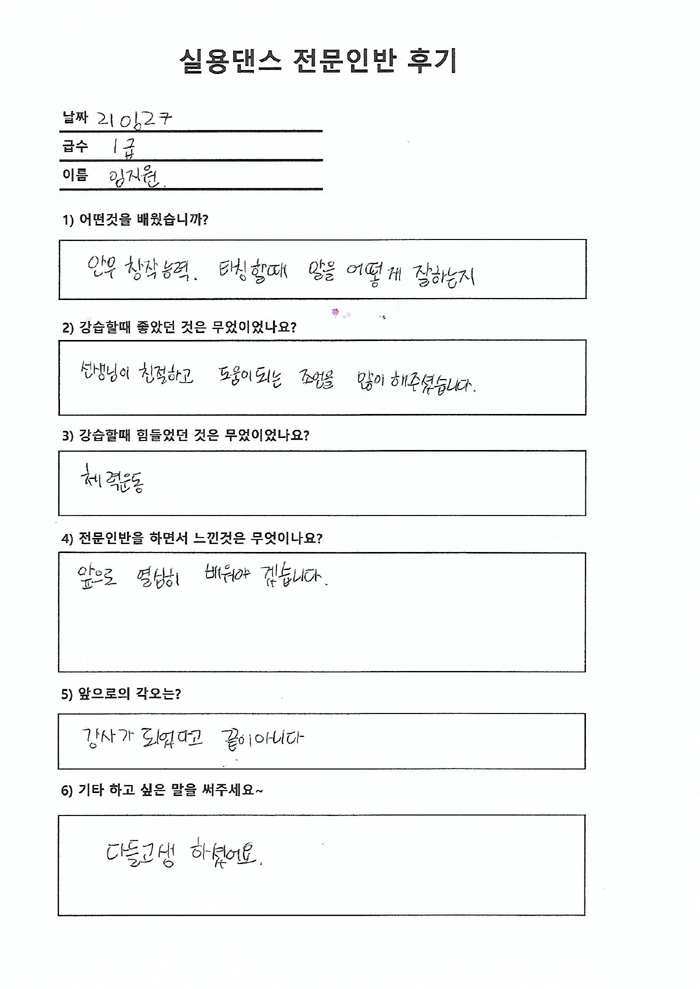 실용댄스 전문인반 후기
날짜 210127
급수 1급
이름 임지원.
1) 어떤것을 배웠습니까?
안무 창작능력. 티칭할때 말을 어떻게 잘하는지
2) 강습할때 좋았던 것은 무었이었나요?
선생님이 친절하고 도움이되는 조언을 많이 해주셨습니다.
3) 강습할때 힘들었던 것은 무었이었나요?
체력운동
4) 전문인반을 하면서 느낀것은 무엇이나요?
앞으로 열심히 배워야 겠습니다.
5) 앞으로의 각오는?
강사가 되었다고 끝이아니다
6) 기타 하고 싶은 말을 써주세요~
다들고생 하셨어요.